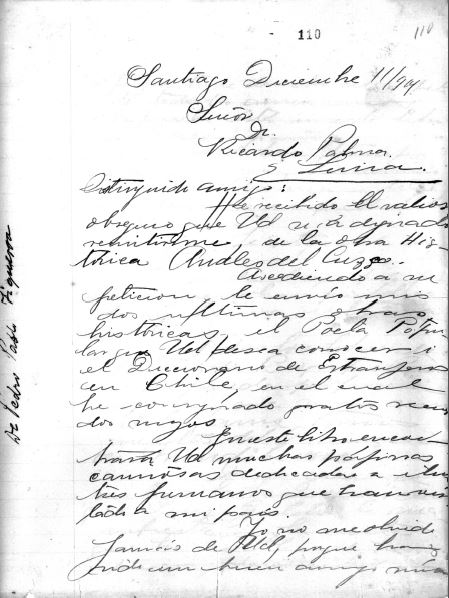 110
110
Santiago Diciembre 11/94
Señor
Dr.
Ricardo Palma.
Lima.
Distinguido amigo:
He recibido el valioso
obsequio que Ud se ha dignado
remitirme, de la obra His
tórica Anales del Cuzco.
Accediendo a su
peticion, le envío mis
dos ultimas obras
históricas, el Poeta Popu
lar que Ud desea conocer i
el Diccionario de Estranjeros
en Chile, en el cual
he consignado gratos recuer
dos suyos.
En este libro encon
trará Ud muchas pájinas
cariñosas dedicadas a ilus
tres peruanos que han
a mi país.
Yo no me olvido
jamás de Ud, porque
un buen amigo mío
De Pedro Pablo Figueroa